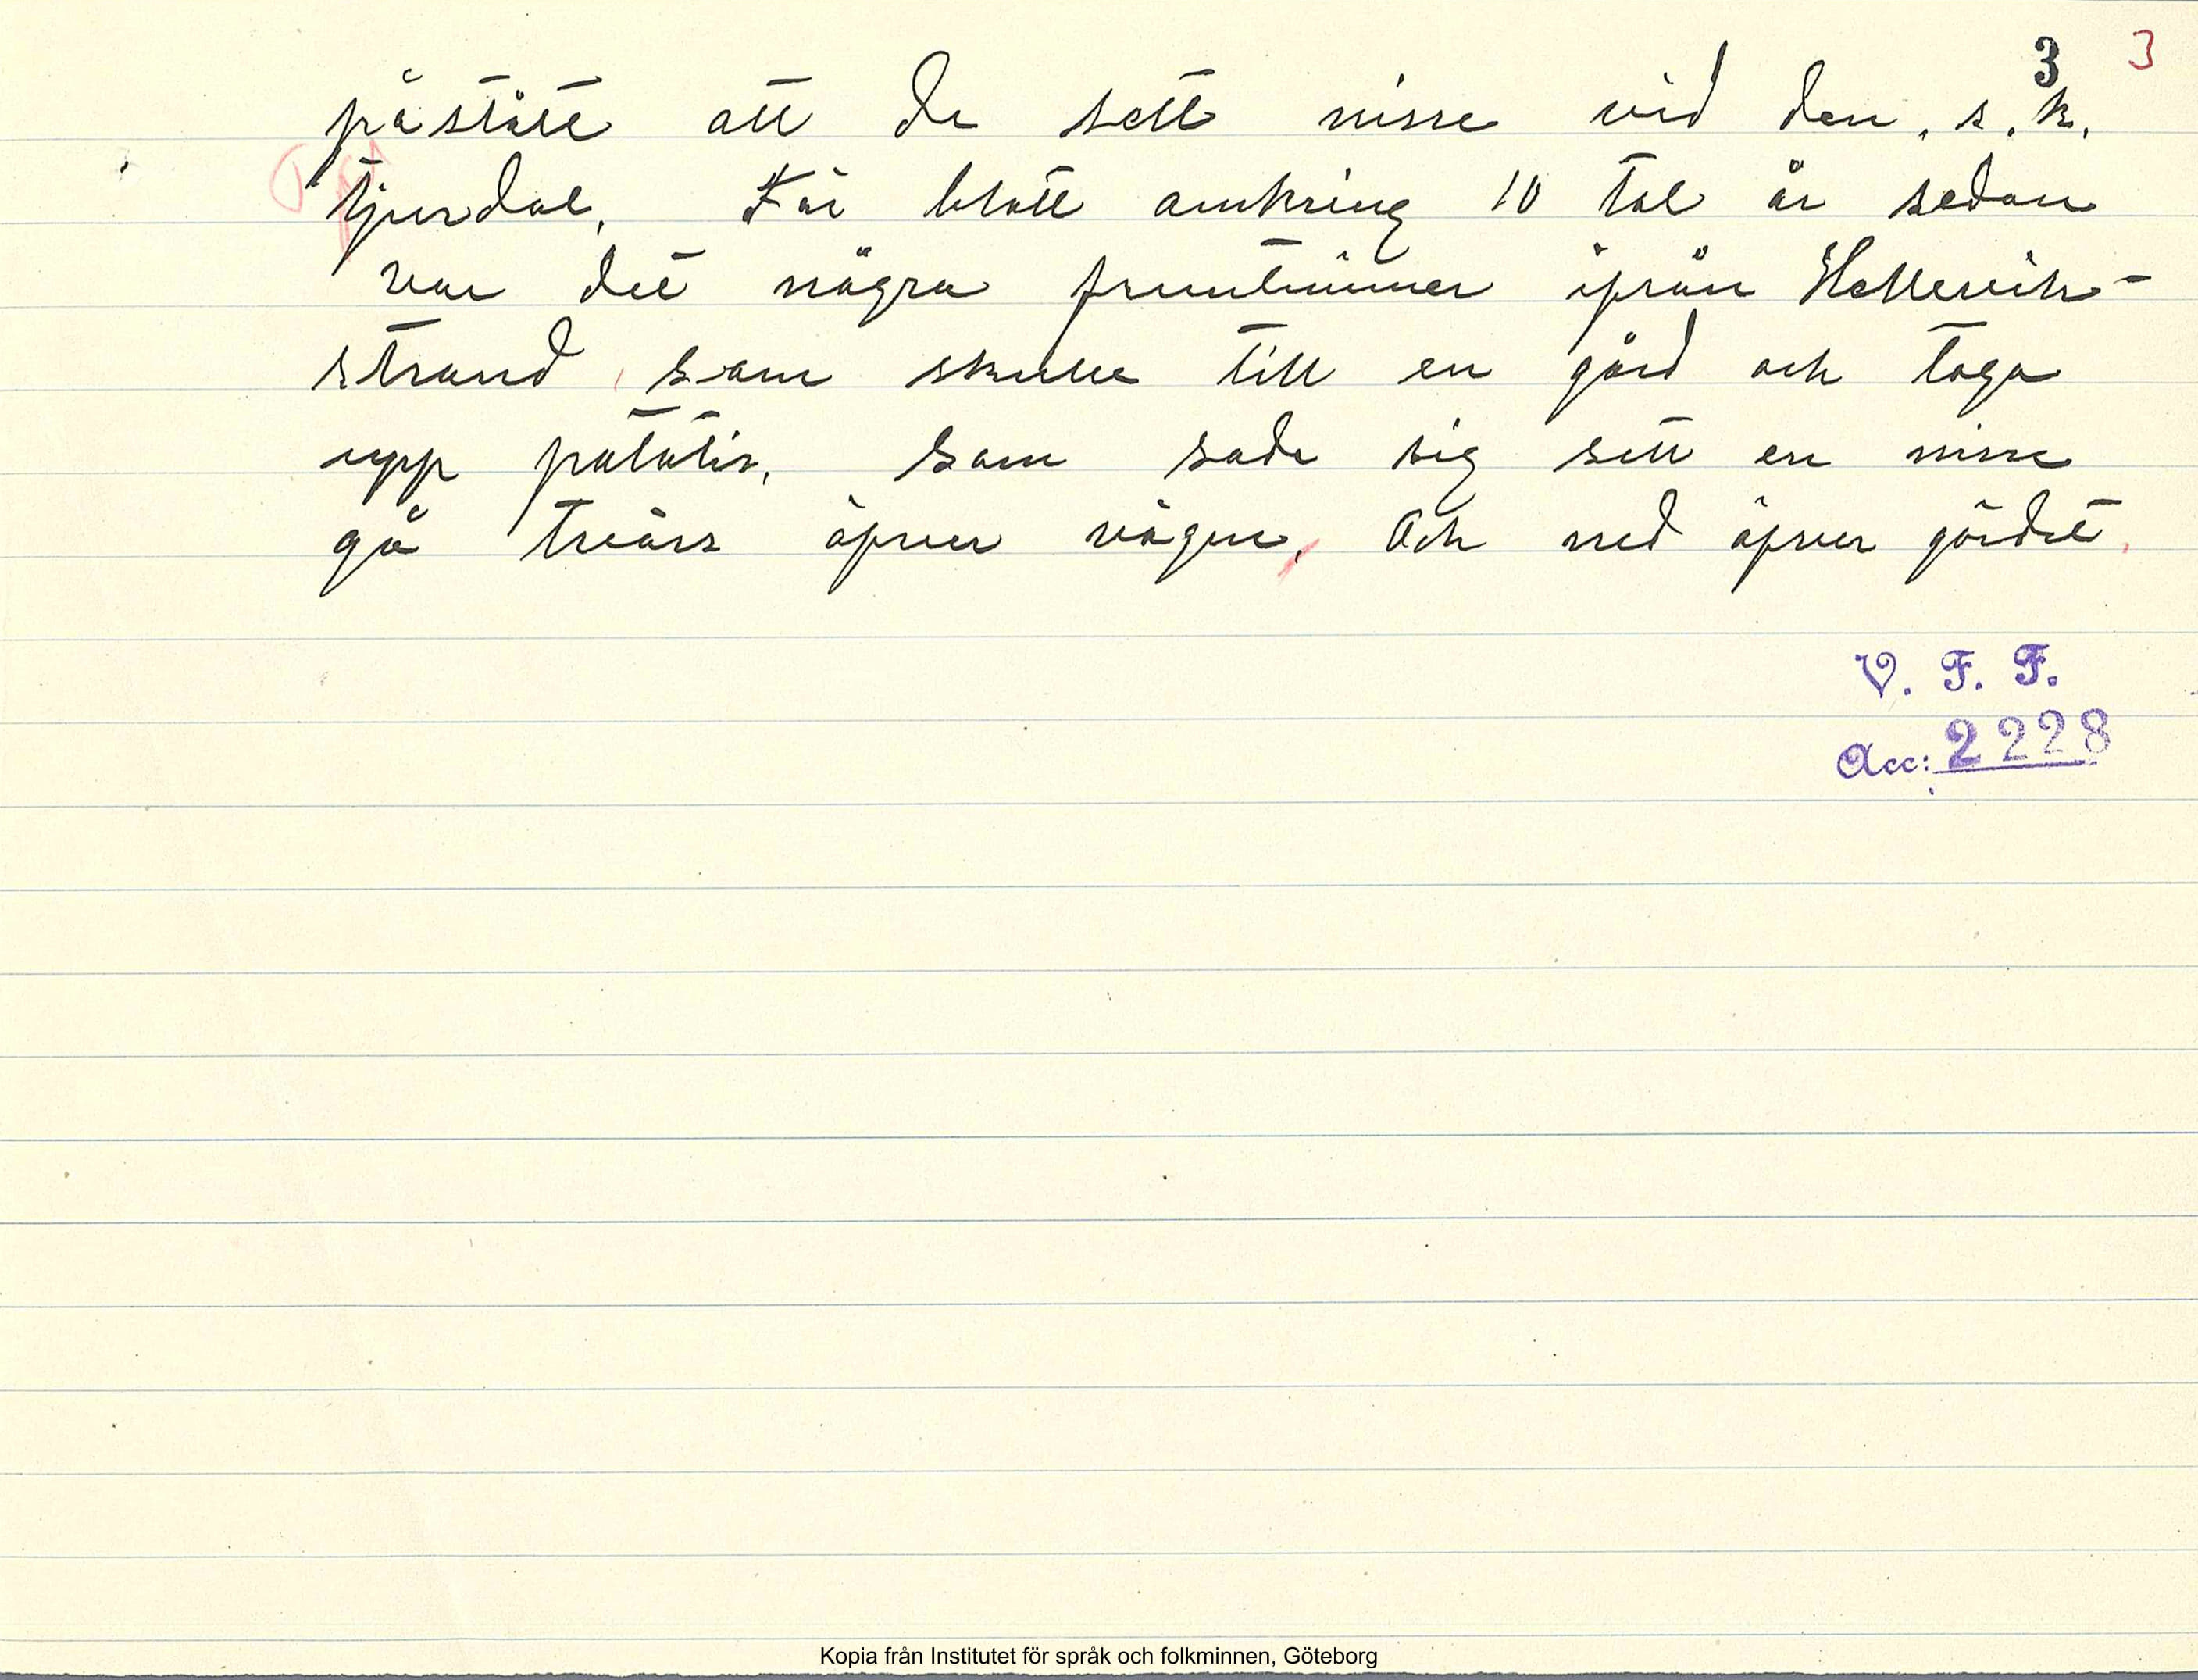 3 3
påstått att de sett nisse vid den, s. k.
tjurdal, För blott omkring 10 tal år sedan
var det några fruntimmer ifrån Hellevik-
strand, som skulle till en gård och taga
upp potatis, Som sade sig sett en nisse
gå tvärs öfver vägen, Och ned öfver gärdet.
V. F. F.
Acc: 2228
Kopia från Institutet för språk och folkminnen, Göteborg